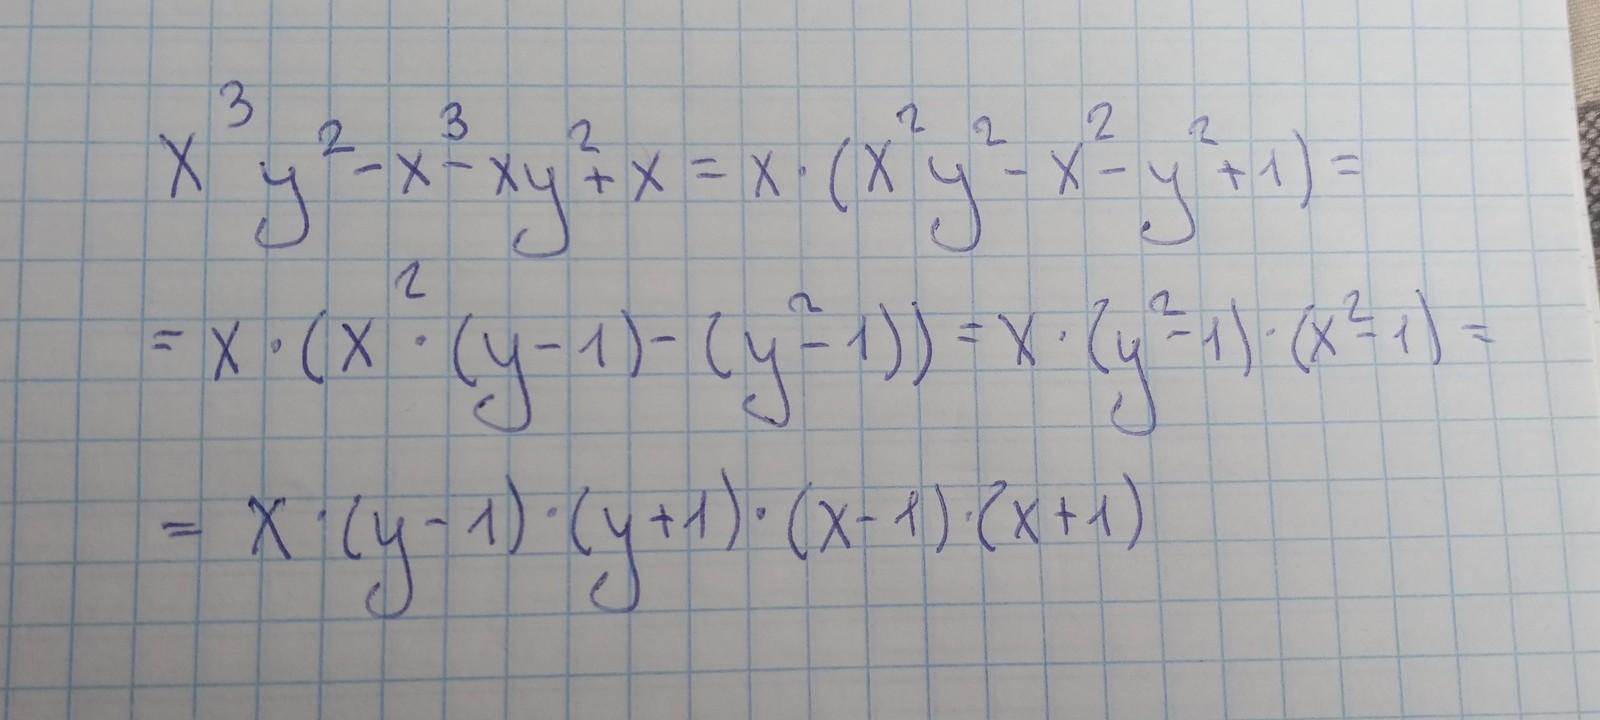 x³y² - x³ - xy² + x = x · (x²y² - x² - y² + 1) =
= x · (x² · (y - 1) - (y² - 1)) = x · (y² - 1) · (x² - 1) =
= x · (y - 1) · (y + 1) · (x - 1) · (x + 1)